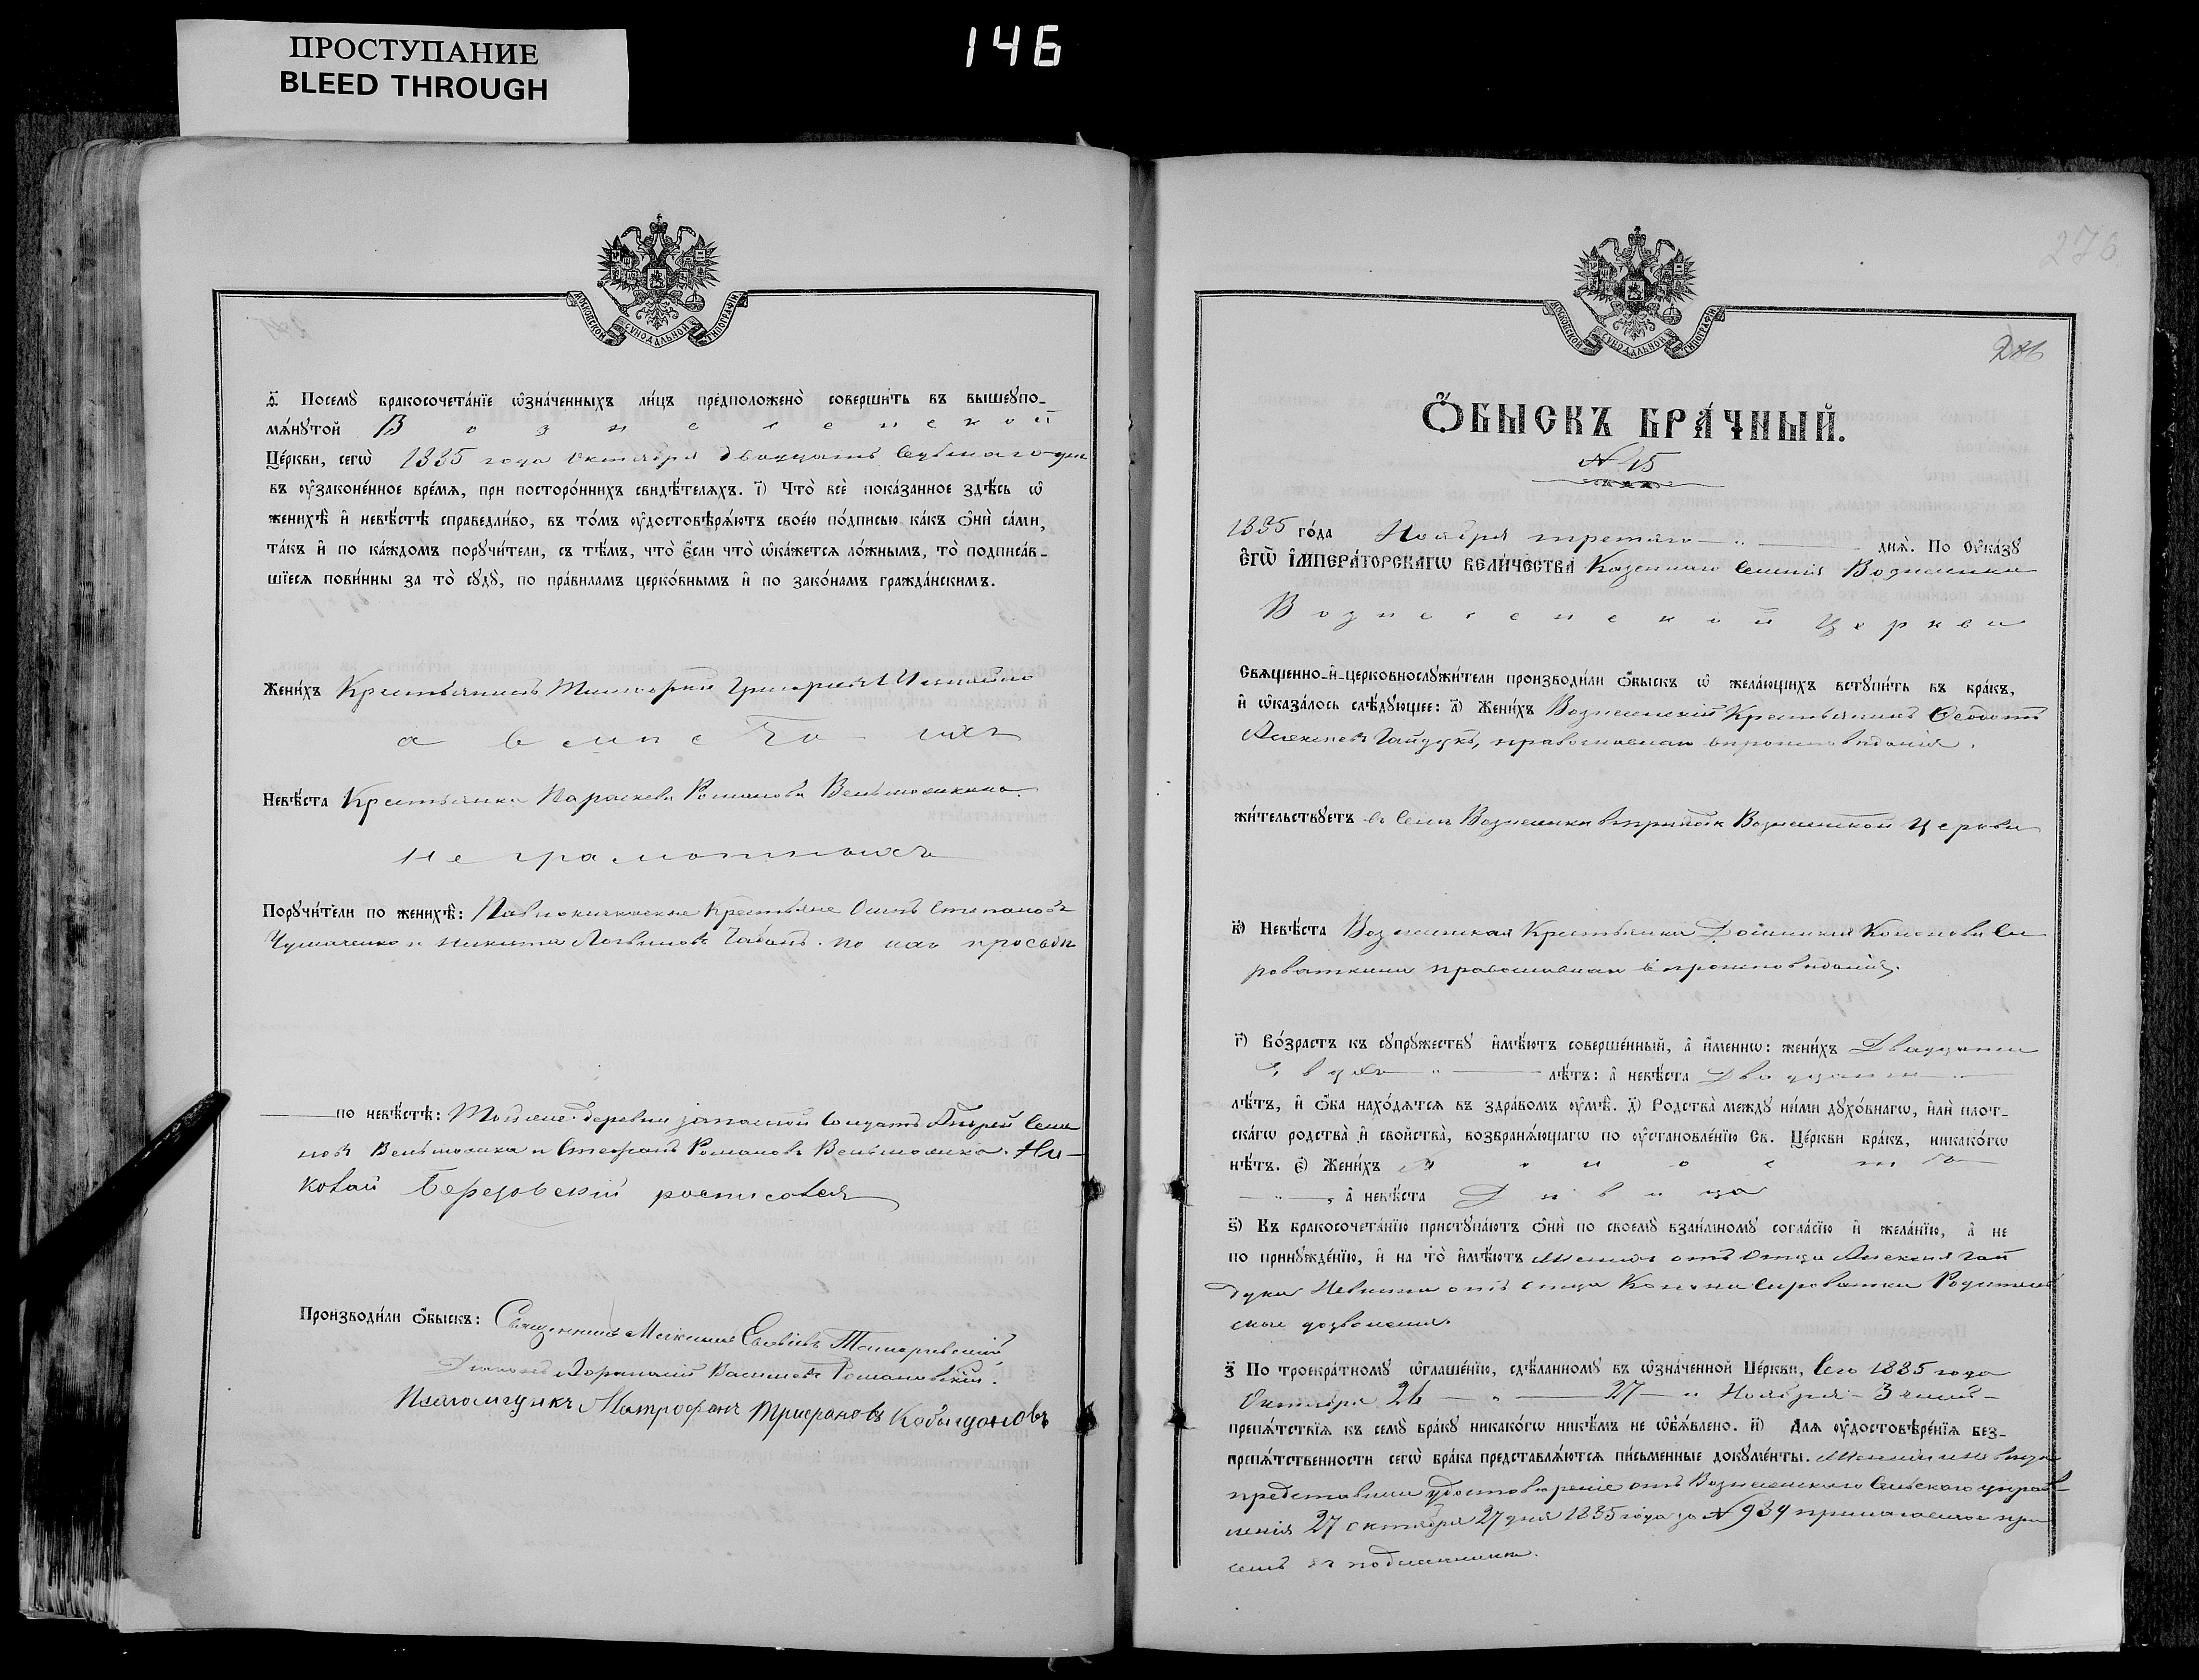 ПРОСТУПАНИЕ
BLEED THROUGH
146
МОСКОВСКОЙ СѴНОДАЛЬНОЙ ТИПОГРАФІИ
ѳ҃. Посемꙋ̀ бракосочета́нїе ѡ҆зна́ченныхъ ли́цъ предположено̀ соверши́ть въ вышеꙋпо-
мѧ́нꙋтой Вознесенской
Це́ркви, сегѡ̀ 1885 года Октября двадцать седьмаго дня
въ ᲂу҆законе́нное вре́мѧ, при посторо́ннихъ свидѣ́телѧхъ. і҃) Что̀ всѐ пока́занное здѣ́сь ѡ҆
женихѣ̀ и҆ невѣ́стѣ справедли́во, въ то́мъ ᲂу҆достовѣрѧ́ютъ свое́ю по́дписью ка́къ ѻ҆нѝ са́ми,
та́къ и҆ по ка́ждомъ порꙋчи́тели, съ тѣ́мъ, что̀ є҆́сли что̀ ѡ҆ка́жетсѧ ло́жнымъ, то̀ подписа́в-
шїесѧ пови́нны за то̀ сꙋдꙋ̀, по пра́виламъ церко́внымъ и҆ по зако́намъ гражда́нскимъ.
Жени́хъ Крестьянинъ Григорій
а вместо ихъ
Невѣ́ста Крестьянка Параскева Романова
не грамотныхъ
Порꙋчи́тели по женихѣ̀: крестьяне Осипъ Степановъ
Чумаченко и Никита Логвиновъ Чабанъ. по ихъ просьбе
по невѣ́стѣ: Тойже деревни запасной солдатъ Андрей Семе
новъ и Стефанъ Романовъ Ни-
колай Березовскій росписался
Производи́ли ѻ҆́быскъ: Священникъ Максимъ
Діаконъ Васильевъ Романовскій.
Псаломщикъ Митрофанъ Трифоновъ
276
286
МОСКОВСКОЙ СѴНОДАЛЬНОЙ ТИПОГРАФІИ
Ѻ҆́БЫСКЪ БРА́ЧНЫЙ.
N 15
1885 го́да Ноября третяго дня̀. По ᲂу҆ка́зꙋ
Є҆ГѠ̀ И҆МПЕРА́ТОРСКАГѠ ВЕЛИ́ЧЕСТВА Казеннаго селенія Вознесенки
Вознесенской Церкви
Свѧще́нно-и҆-церковнослꙋжи́тели производи́ли ѻ҆́быскъ ѡ҆ жела́ющихъ встꙋпи́ть въ бра́къ,
и҆ ѡ҆каза́лось слѣ́дꙋющее: а҃) Жени́хъ Вознесенскій Крестьянинъ Ѳеодотъ
Алексеевъ Гайдукъ, православнаго вероисповеданія.
жи́тельствꙋетъ въ селе Вознесенки въ приходе Вознесенской Церкви
в҃) Невѣ́ста Вознесенская Крестьянка Домникія Кононова Си
роваткина православнаго вероисповеданія.
г҃) Во́зрастъ къ сꙋпрꙋ́жествꙋ и҆мѣ́ютъ соверше́нный, а҆ и҆́менно: жени́хъ Двадцати
двухъ лѣ́тъ: а҆ невѣ́ста Двадцати
лѣ́тъ, и҆ ѻ҆́ба нахо́дѧтсѧ въ здра́вомъ ᲂу҆мѣ̀. д҃) Родства̀ междꙋ̀ ни́ми дꙋхо́внагѡ, и҆лѝ плот-
ска́гѡ родства̀ и҆ сво́йства, возбранѧ́ющагѡ по ᲂу҆становле́нїю Св. Це́ркви бра́къ, никако́гѡ
нѣ́тъ. є҃) Жени́хъ Холостъ
, а҆ невѣ́ста Девица
ѕ҃) Къ бракосочета́нїю пристꙋпа́ютъ ѻ҆нѝ по своемꙋ̀ взаи́мномꙋ согла́сїю и҆ жела́нїю, а҆ не
по принꙋжде́нїю, и҆ на то̀ и҆мѣ́ютъ Женихъ отъ отца Алексея Гай
дука Невеста отъ отца Конона Сироватки Родитель
ское дозволеніе.
з҃ По троекра́тномꙋ ѡ҆глаше́нїю, сдѣ́ланномꙋ въ ѡ҆зна́ченной Це́ркви, Сего 1885 года
Октября 26 27 и Ноября 3 чиселъ
препѧ́тствїѧ къ семꙋ̀ бра́кꙋ никако́гѡ никѣ́мъ не ѡ҆б̾ѧ́влено. и҃) Для ᲂу҆достовѣре́нїѧ без-
препѧ́тственности сегѡ̀ бра́ка представлѧ́ютсѧ пи́сьменные докꙋме́нты.
представили удостовереніе отъ Вознесенскаго Сельскаго управ
ленія 27 октября 27 дня 1885 года за N 934 прилагаемое при
семъ въ подлиннике.